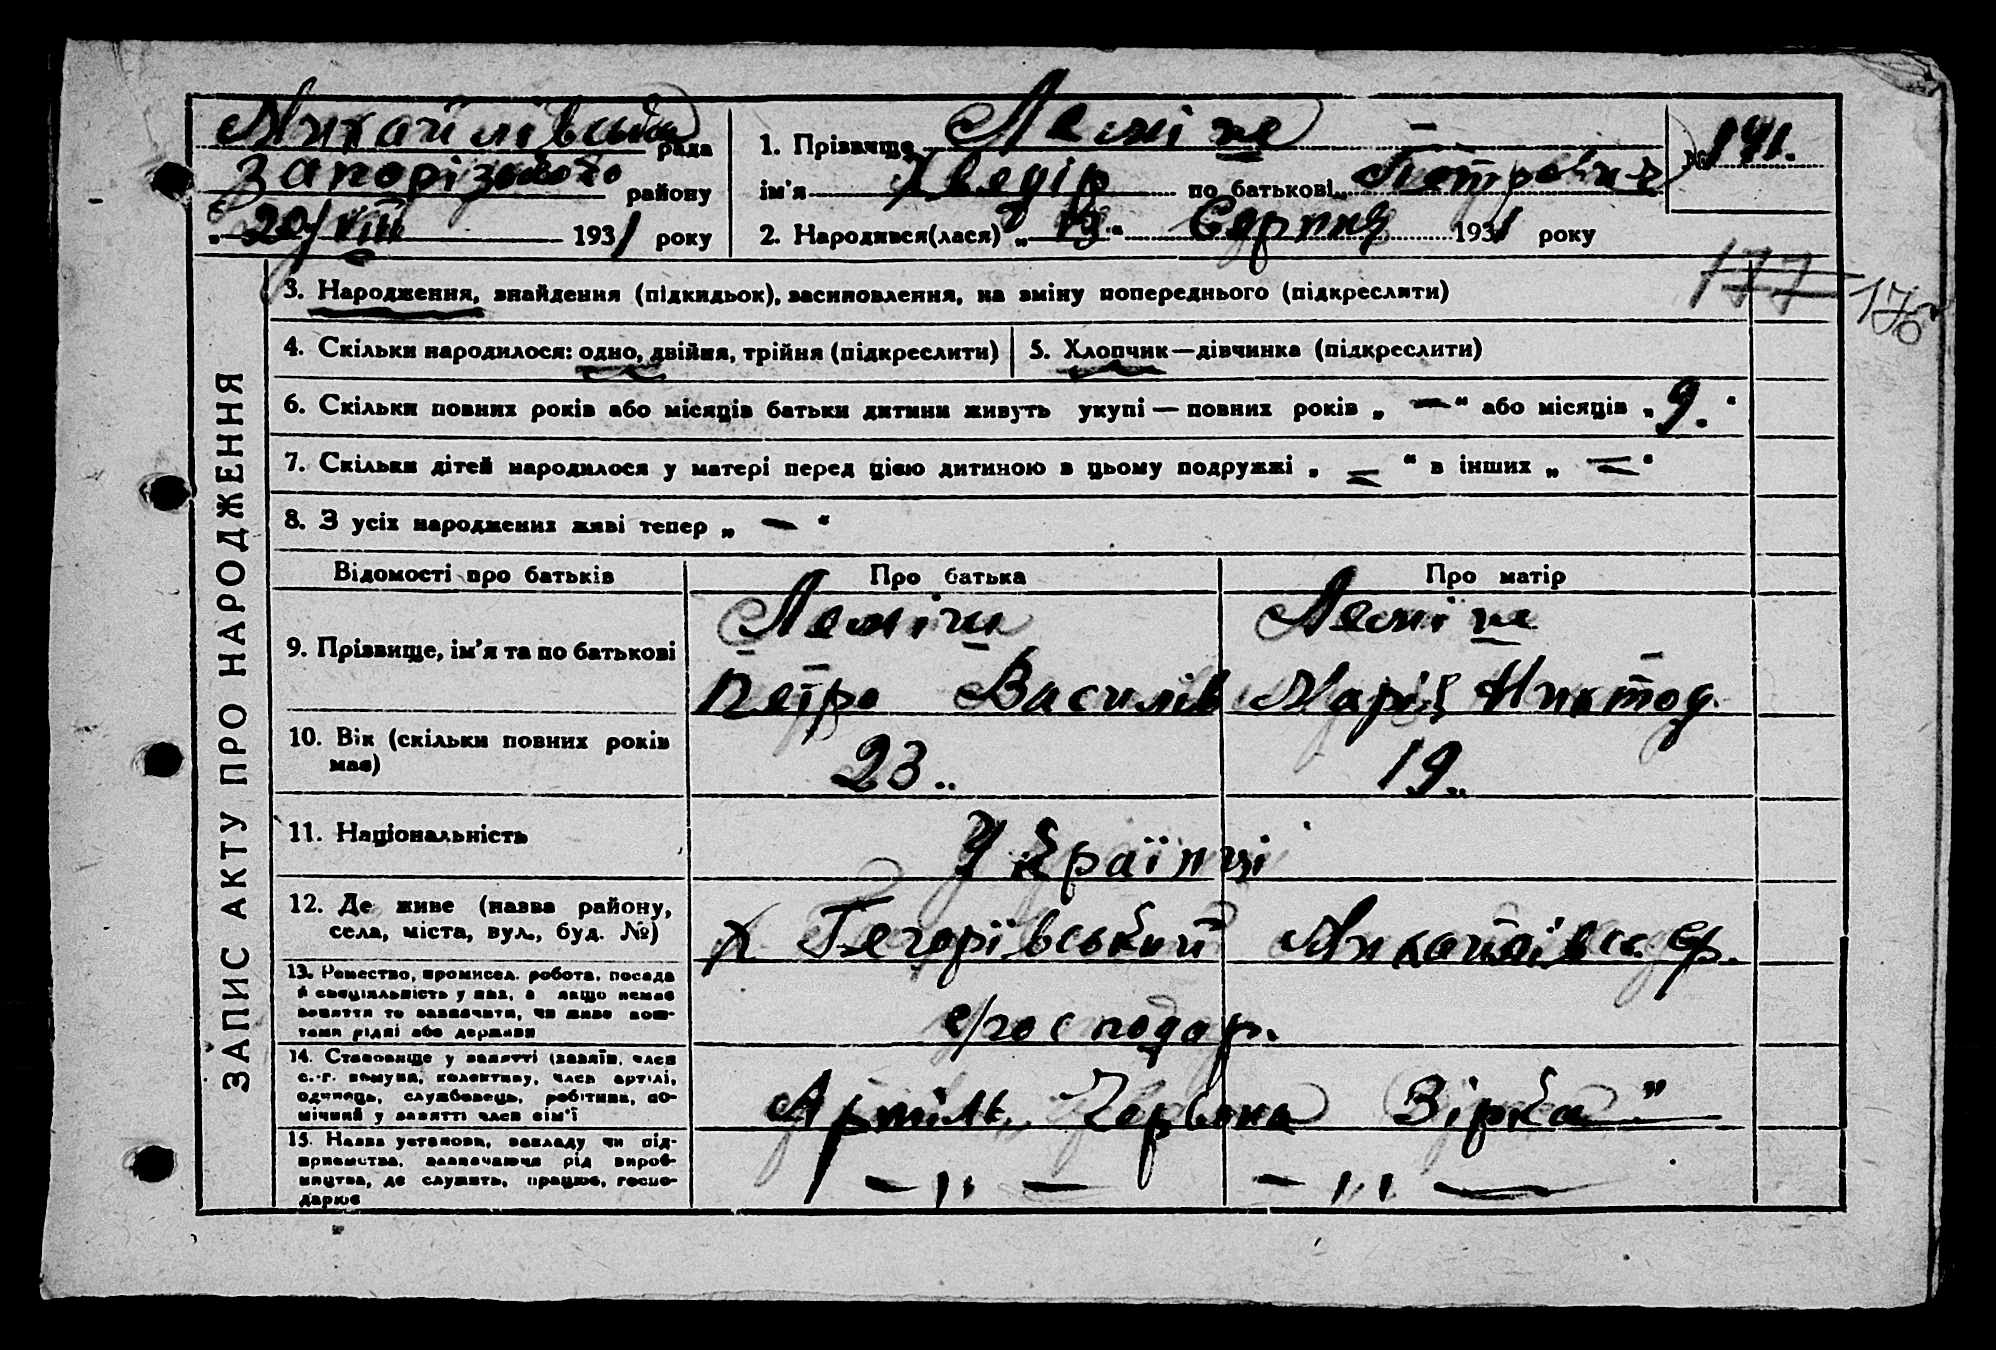 Михайлівська рада
Запорізького району
„ 20/VIII 1931 року
1. Прізвище Леміш
№ 141.
ім'я Хведір по батькові Петрович
2. Народився(лася) „ 19 “ Серпня 1931 року
177 176
3. Народження, знайдення (підкидьок), засиновлення, на зміну попереднього (підкреслити)
4. Скільки народилося: одно, двійня, трійня (підкреслити) 5. Хлопчик—дівчинка (підкреслити)
6. Скільки повних років або місяців батьки дитини живуть укупі — повних років „ — “ або місяців „ 9. “
7. Скільки дітей народилося у матері перед цією дитиною в цьому подружжі „ — “ в інших „ — “
8. З усіх народжених живі тепер „ — “
ЗАПИС АКТУ ПРО НАРОДЖЕННЯ
Відомості про батьків Про батька Про матір
9. Прізвище, ім'я та по батькові
Леміш Леміш
Петро Василів Марія Никтод
10. Вік (скільки повних років має)
23.. 19..
11. Національність
Українці
12. Де живе (назва району,
села, міста, вул., буд. №)
х Григорівський Михайлівс. ср.
13. Ремество, промисел, робота, посада
й спеціяльність у них, а якщо немає
заняття то зазначити, чи живе кош-
тами рідні або держави
с/господар.
14. Становище у занятті (хазяїн, член
с.-г. комуни, колективу, член артілі,
одинець, службовець, робітник, по-
мічний у занятті член сім'ї
Артіль Червона Зірка"
15. Назва установи, закладу чи під-
приємства, зазначаючи рід вироб-
ництва, де служить, працює, госпо-
дарює
— „ — — „ —